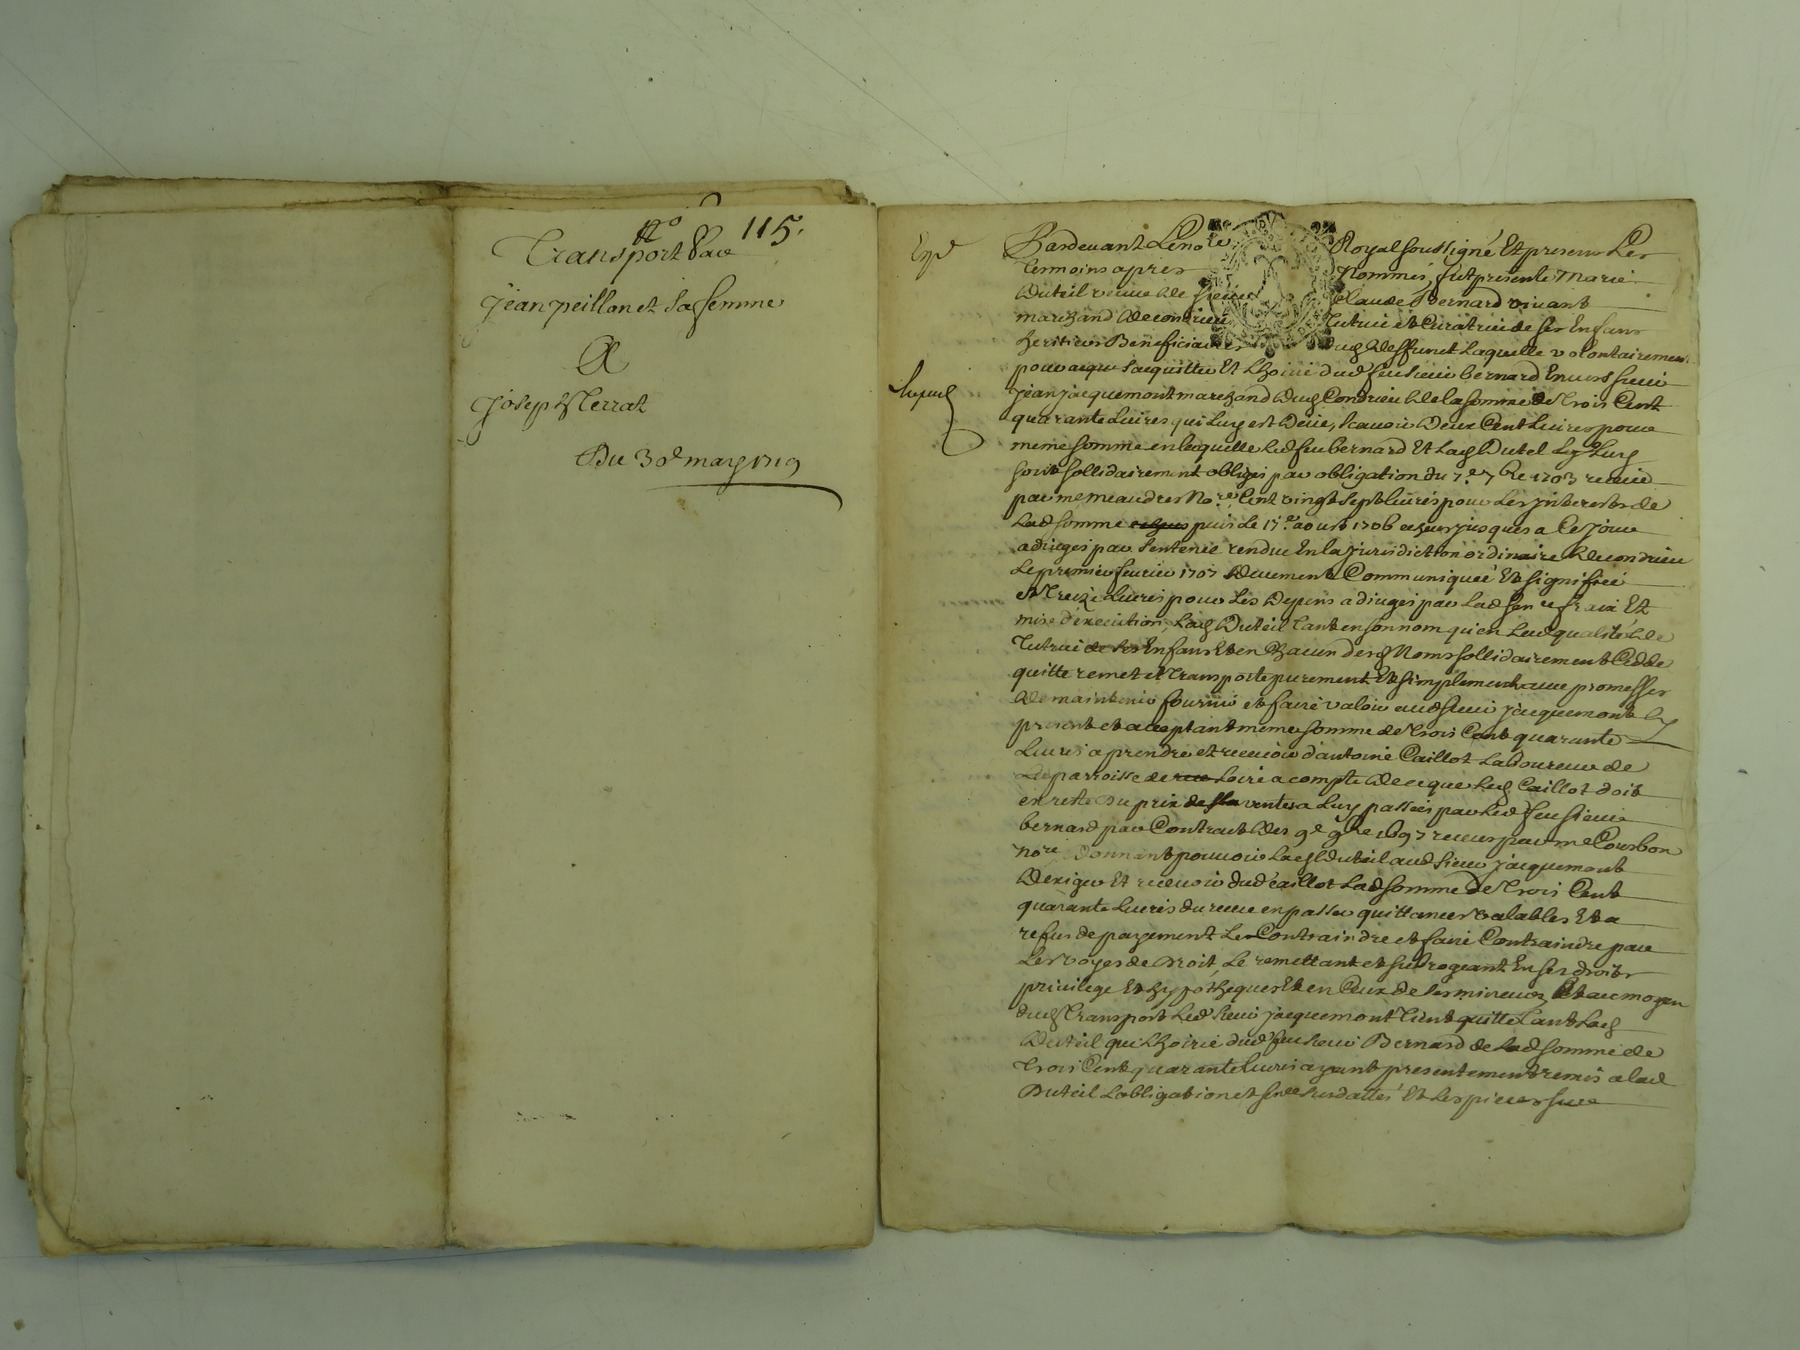 No 115.
Transport par
Jean peillon et sa femme
A
Joseph Terrat
Du 30e may 1719
Expé
Pardevant Le nore Royal soussigné Et presens Les
temoins apres Nommes, fut presente Marie
Duteil veuve de sieur Claude Bernard vivant
marchand de condrieu Tutrice et Curatrice de ses Enfans
heritiers Beneficiaires dud deffunct Laquelle volontairement
pour s'acquitter Et L'hoirie dud feu sieur bernard Envers sieur
Jean jacquemont marchand dud Condrieu de la somme de Trois Cent
quarante Livres qui Luy est Deüe, scavoir Deux Cent Livres pour
meme somme en laquelle led feu bernard Et Lad Dutel Luy
sont sollidairement obligés par obligation du 7e 7bre 1703 receüe
par me meandres Nore, Cent vingt sept livres pour Les Interests de
Lad somme puis Le 17e aoust 1706 jusques a Ce jour
adjugés par sentence rendue En la jurisdiction ordinaire de condrieu
Le premier fevrier 1707 deuement Communiquée Et signifiée
et Treize Livres pour Les Depens adjugés par Lad sence frais Et
mise d'execution, Lad Duteil tant en son nom qu'en Lad qualité de
Tutrice de ses Enfans Et en Chacun desd Noms sollidairement Cedde
quitte remet et Transporte purement Et simplement avec promesses
de maintenir fournir et faire valoir aud sieur jacquemont
present et acceptant meme somme de Trois Cent quarante
Livres a prendre et recevoir d'antoine Caillot Laboureur de
La parroisse de Loire a compte de ce que Led Caillot doit
en reste du prix de la vente a Luy passée par Led feu sieur
bernard par Contract des 9e 9bre 1697 receus par me Courbon
nore donnant pouvoir Lad Duteil aud sieur jacquemont
d'exiger Et recevoir dud caillot Lad somme de Trois Cent
quarante Livres du receu en passer quittances valables Et a
refus de payement Le Contraindre et faire Contraindre par
Les voyes de Droit, Le remettant et subrogeant En ses droits
privilege Et hypotheques Et en Ceux de ses mineurs, Et au moyen
dud Transport Led sieur jacquemont Tient quitte tant Lad
Duteil que L'hoirie dud feu sieur Bernard de Lad somme de
Trois Cent quarante livres ayant presentement remis a lad
Duteil L'obligation et sence susdattés Et Les pieces sur